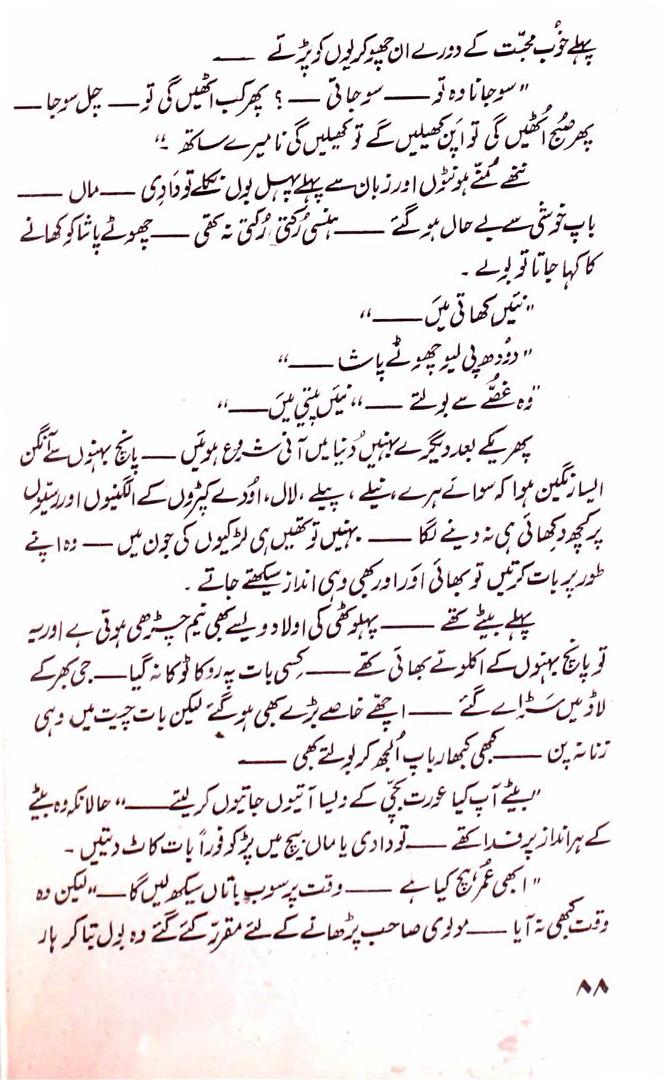 پہلے خوب محبّت کے دورے ان چھوکریوں کو پڑتے ——
"سو جانا وہ تو —— سو جاتی —— ؟ پھر کب اٹھیں گی تو —— چل سو جا ——
پھر صُبح اُٹھیں گی تو اَپن کھیلیں گے تو کھیلیں گی نا میرے ساتھ ؟"
ننھے مُنّے ہونٹوں اور زبان سے پہلے پہل بول نکلے تو دَادِی —— ماں ——
باپ خوشی سے بے حال ہو گئے —— ہنسی رُکتی رُکتی نہ تھی —— چھوٹے پاشا کو کھانے
کا کہا جاتا تو بولے ۔
"نئیں کھاتی میَں ——"
"دُودھ پی لیو چھوٹے پاشا ——"
"وہ غصّے سے بولتے —— "نئیں پیتی میَں ——"
پھر یکے بعد دیگرے بہنیں دُنیا میں آنی شروع ہوئیں —— پانچ بہنوں سے آنگن
ایسا رنگین ہوا کہ سوائے ہرے ، نیلے ، پیلے ، لال ، اُودے کپڑوں کے الگنیوں اور رسّیوں
پر کچھ دکھائی ہی نہ دینے لگا —— بہنیں تو تھیں ہی لڑکیوں کی جون میں —— وہ اپنے
طور پر بات کرتیں تو بھائی اَور اور بھی وہی انداز سیکھتے جاتے ۔
پہلے بیٹے تھے —— پہلوٹھی کی اولاد ویسے بھی نیم چڑھی ہوتی ہے اور یہ
تو پانچ بہنوں کے اکلوتے بھائی تھے —— کِسی بات پہ روکا ٹوکا نہ گیا —— جی بھر کے
لاڈ میں سَڑائے گئے —— اچھے خاصے بڑے بھی ہو گئے لیکن بات چیت میں وہی
زنانہ پن —— کبھی کبھار باپ اُلجھ کر بولتے بھی ——
"بیٹے آپ کیا عورت بچّی کے ولیسا آتیوں جاتیوں کر لیتے ——" حالانکہ وہ بیٹے
کے ہر انداز پر فدا تھے —— تو دادی یا ماں بیچ میں پڑ کو فوراً بات کاٹ دیتیں ۔
"ابھی عُمر ہیچ کیا ہے —— وقت پر سوب باتاں سیکھ لیں گا ——" لیکن وہ
وقت کبھی نہ آیا —— مولوی صاحب پڑھانے کے لئے مقرّر کئے گئے وہ بول بتا کر ہار
۸۸